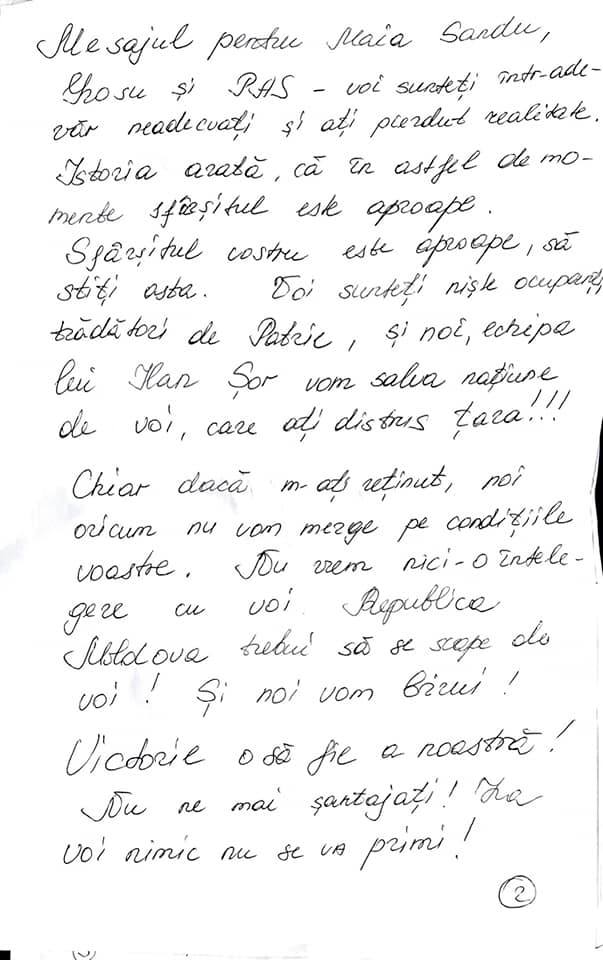 Mesajul pentru Maia Sandu,
Grosu și PAS - voi sunteți într-ade-
văr neadecuați și ați pierdut realitate.
Istoria arată, că în astfel de mo-
mente sfîrșitul este aproape.
Sfârșitul vostru este aproape, să
stiți asta. Voi sunteți niște ocupanți,
trădători de Patrie, și noi, echipa
lui Ilan Șor vom salva națiune
de voi, care ați distrus țara!!!
Chiar dacă m-ați reținut, noi
oricum nu vom merge pe condițiile
voastre. Nu vrem nici-o înțele-
gere cu voi Republica
Moldova trebui să se scape de
voi! Și noi vom birui!
Victorie o să fie a noastră!
Nu ne mai șantajați! La
voi nimic nu se va primi!
2